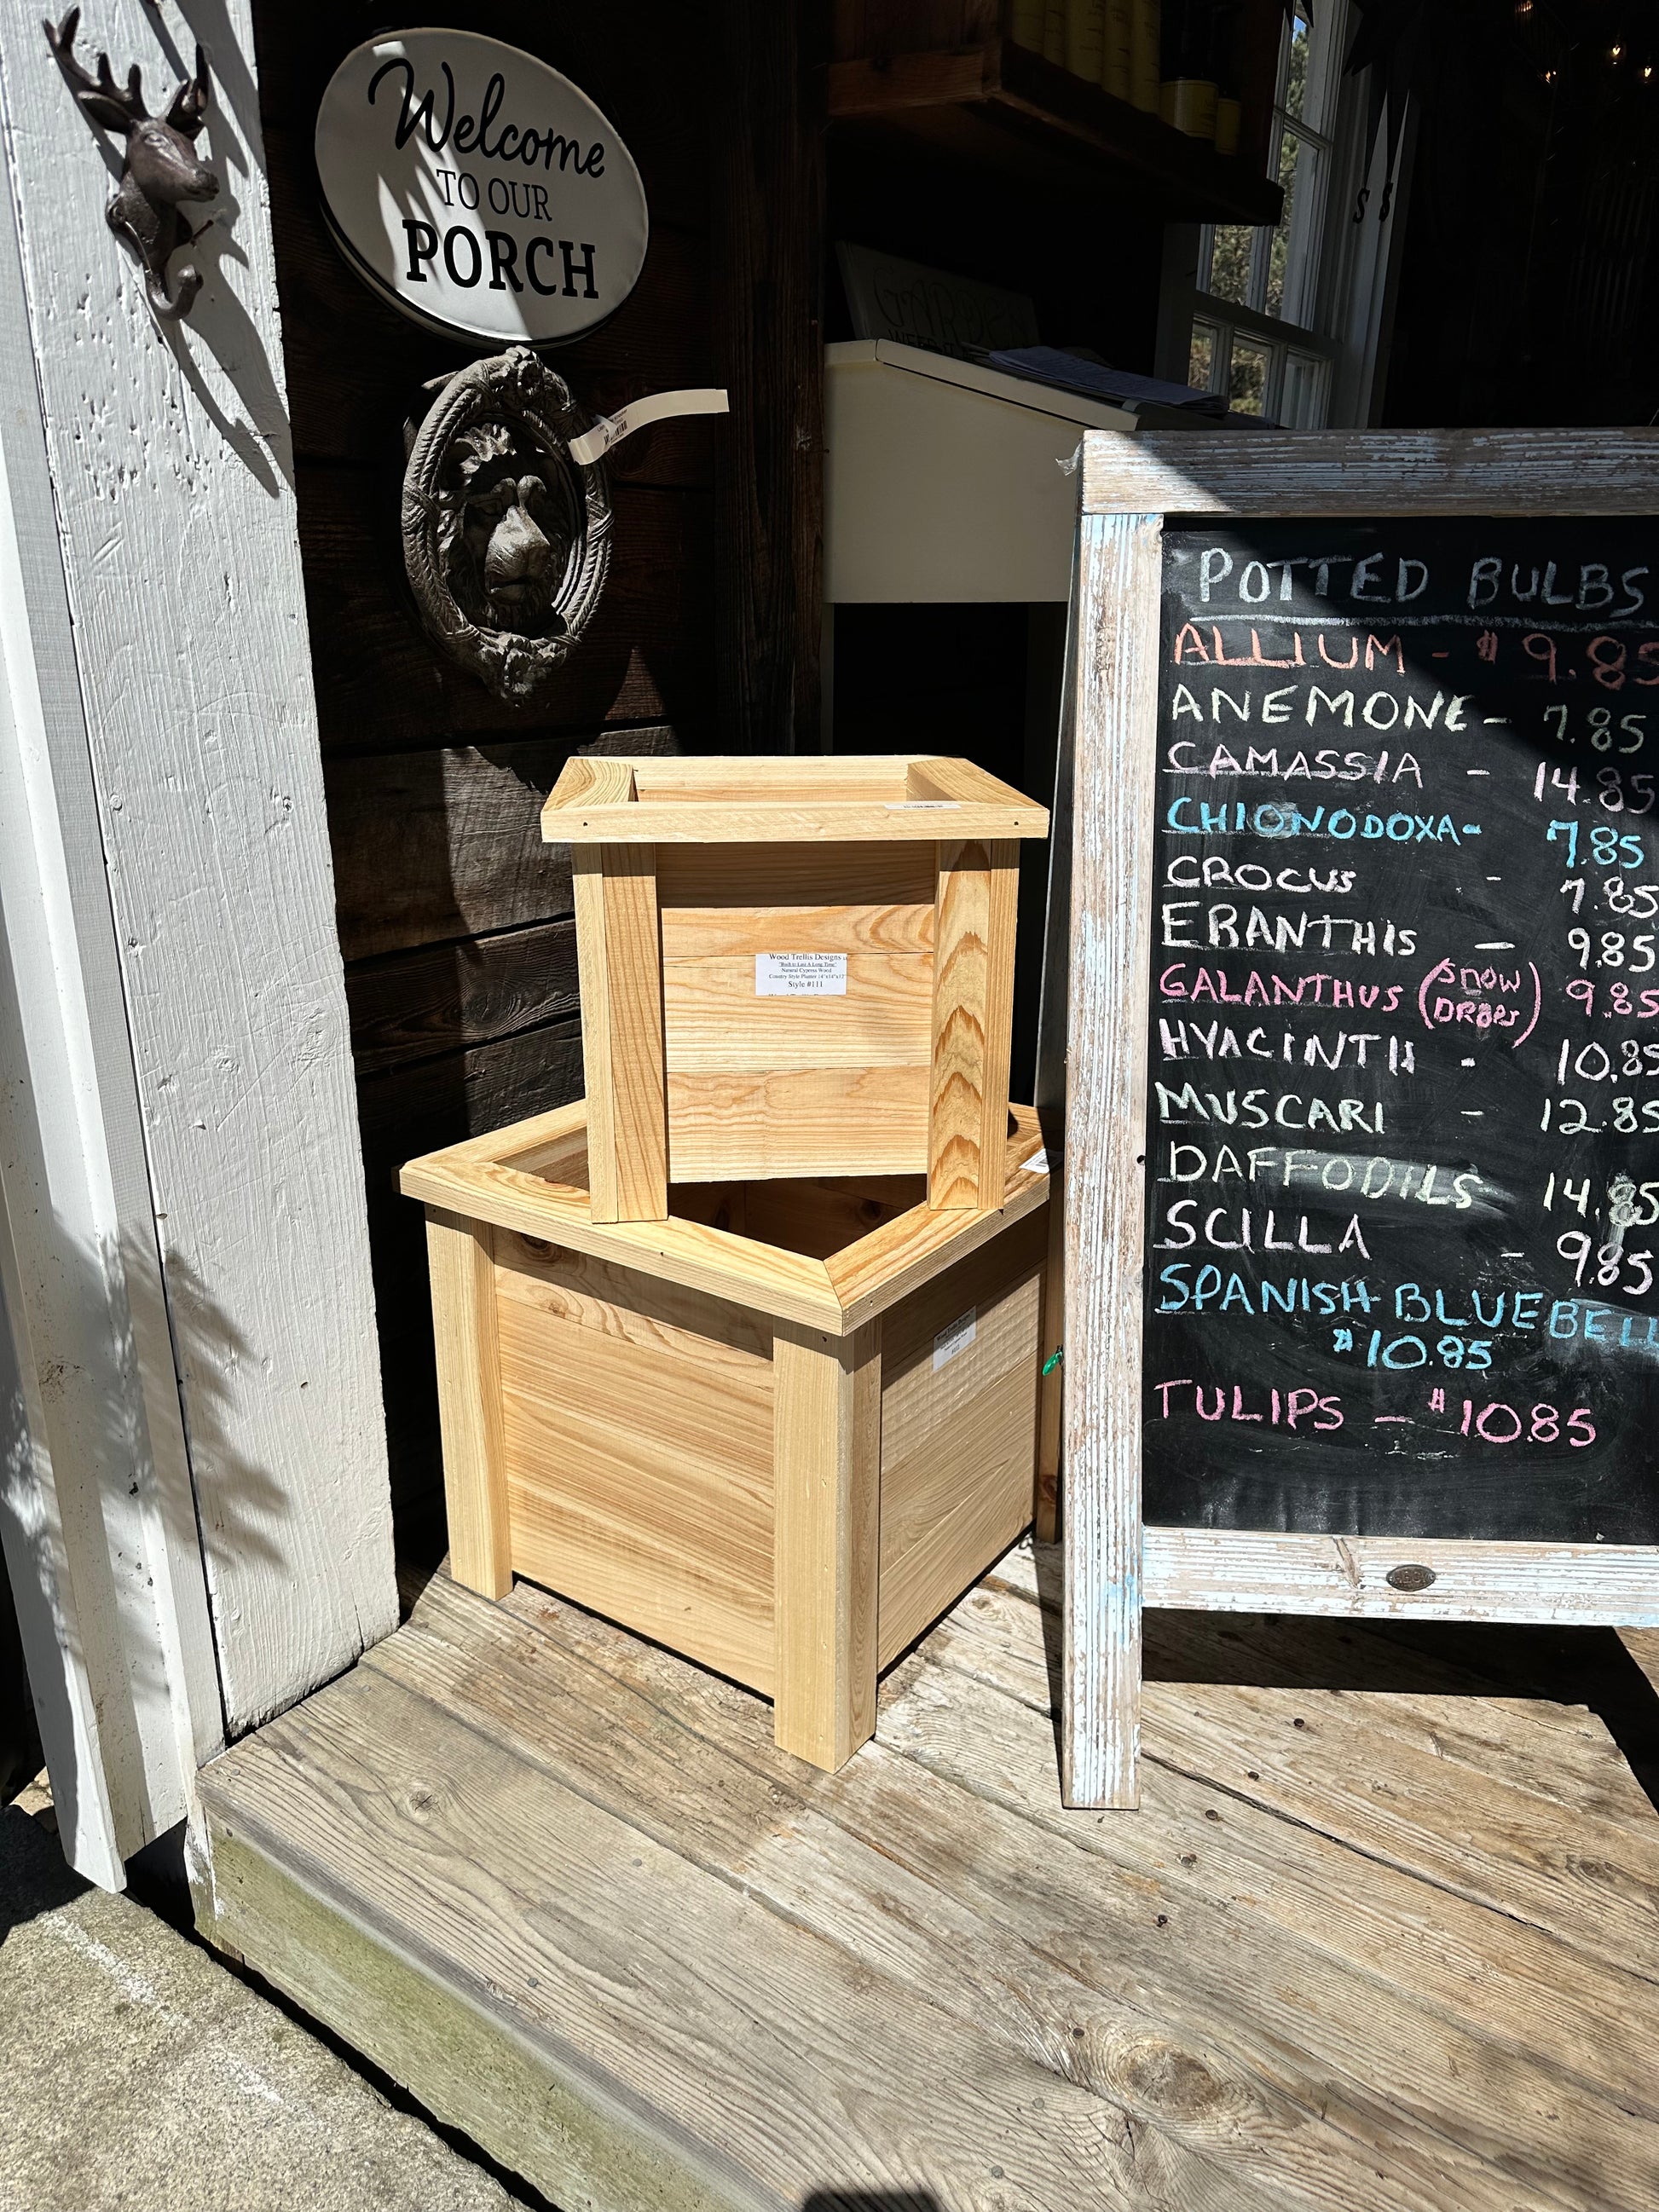 Welcome
TO OUR
PORCH
GARDEN
POTTED BULBS
ALLIUM - $ 9.85
ANEMONE - 7.85
CAMASSIA - 14.85
CHIONODOXA - 7.85
CROCUS - 7.85
ERANTHIS - 9.85
GALANTHUS (SNOW DROPS) 9.85
HYACINTH - 10.85
MUSCARI - 12.85
DAFFODILS 14.85
SCILLA - 9.85
SPANISH BLUEBELL
$10.85
TULIPS - $10.85
Wood Trellis Designs
"Built to Last A Long Time"
Natural Cypress Wood
Country Style Planter 14"x14"x13"
Style #111